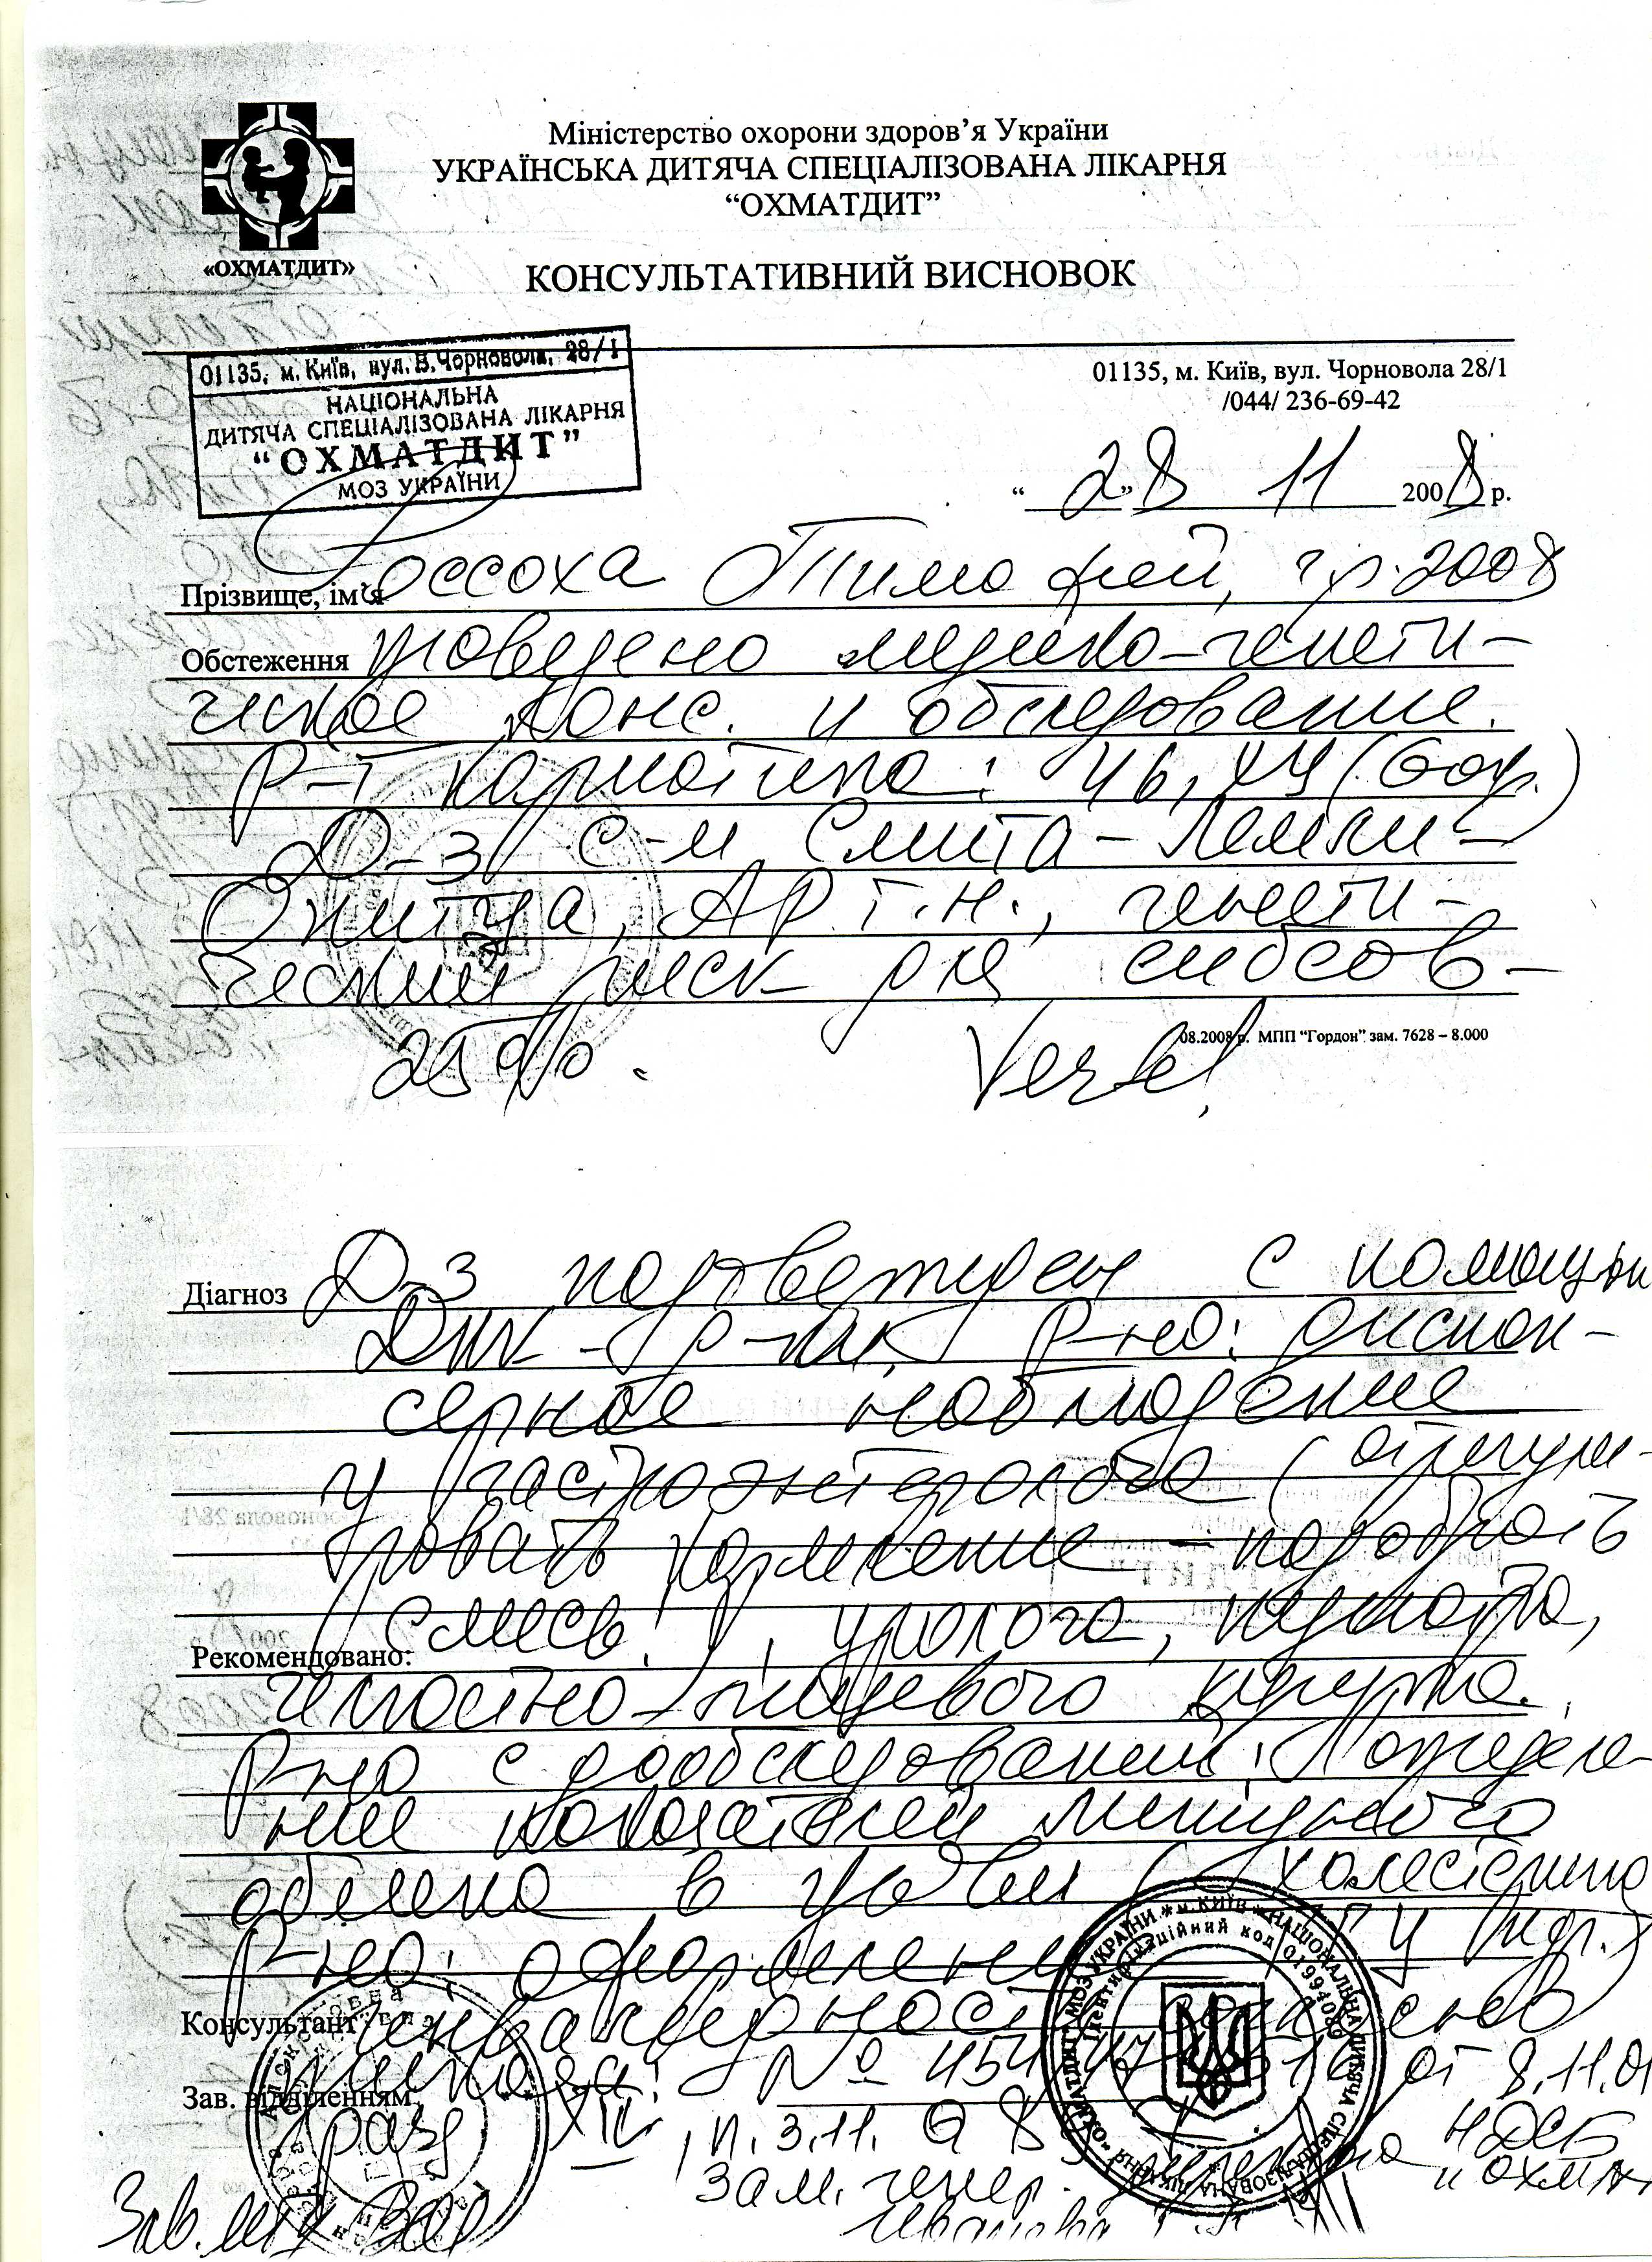 Міністерство охорони здоров’я України
УКРАЇНСЬКА ДИТЯЧА СПЕЦІАЛІЗОВАНА ЛІКАРНЯ
“ОХМАТДИТ”
«ОХМАТДИТ»
КОНСУЛЬТАТИВНИЙ ВИСНОВОК
01135, м. Київ, вул. В.Чорновола, 28/1
НАЦІОНАЛЬНА
ДИТЯЧА СПЕЦІАЛІЗОВАНА ЛІКАРНЯ
“ОХМАТДИТ”
МОЗ УКРАЇНИ
01135, м. Київ, вул. Чорновола 28/1
/044/ 236-69-42
“ 28 ” 11 2008 р.
Прізвище, ім’я Россоха Тимофей, г.р. 2008
Обстеження проведено медико-генети-
ческое конс. и обследование.
Р-т кариотипа: 46, XY (бор.)
D-з с-м Смита-Лемли-
Опитца, АР т.н., генети-
ческий риск для сибсов -
25%.
08.2008 р. МПП “Гордон” зам. 7628 – 8.000
Діагноз D-з подтвержден с помощью
ДНК - Р-но: диспан-
серное наблюдение
у гастроэнтеролога (отрегули-
ровать кормление - подобрать
смесь!), уролога,
Рекомендовано:
челюстно-лицевого хирурга.
Р-но с дообследованием: Определе-
ние показателей липидного
обмена в крови (холестерина
и др.)
Р-но: оформление
Консультант: инвалидности согласно
приказа: № 454/ от 8.11.01
Зав. відділенням:
разд XIV, п. 3.11.
Зам. генер. директора НДСЛ
"ОХМАТ
Иванова
Зав. МГК
МОЗ УКРАЇНИ * м. КИЇВ * НАЦІОНАЛЬНА ДИТЯЧА СПЕЦІАЛІЗОВАНА ЛІКАРНЯ "ОХМАТДИТ"
Ідентифікаційний код 01994089